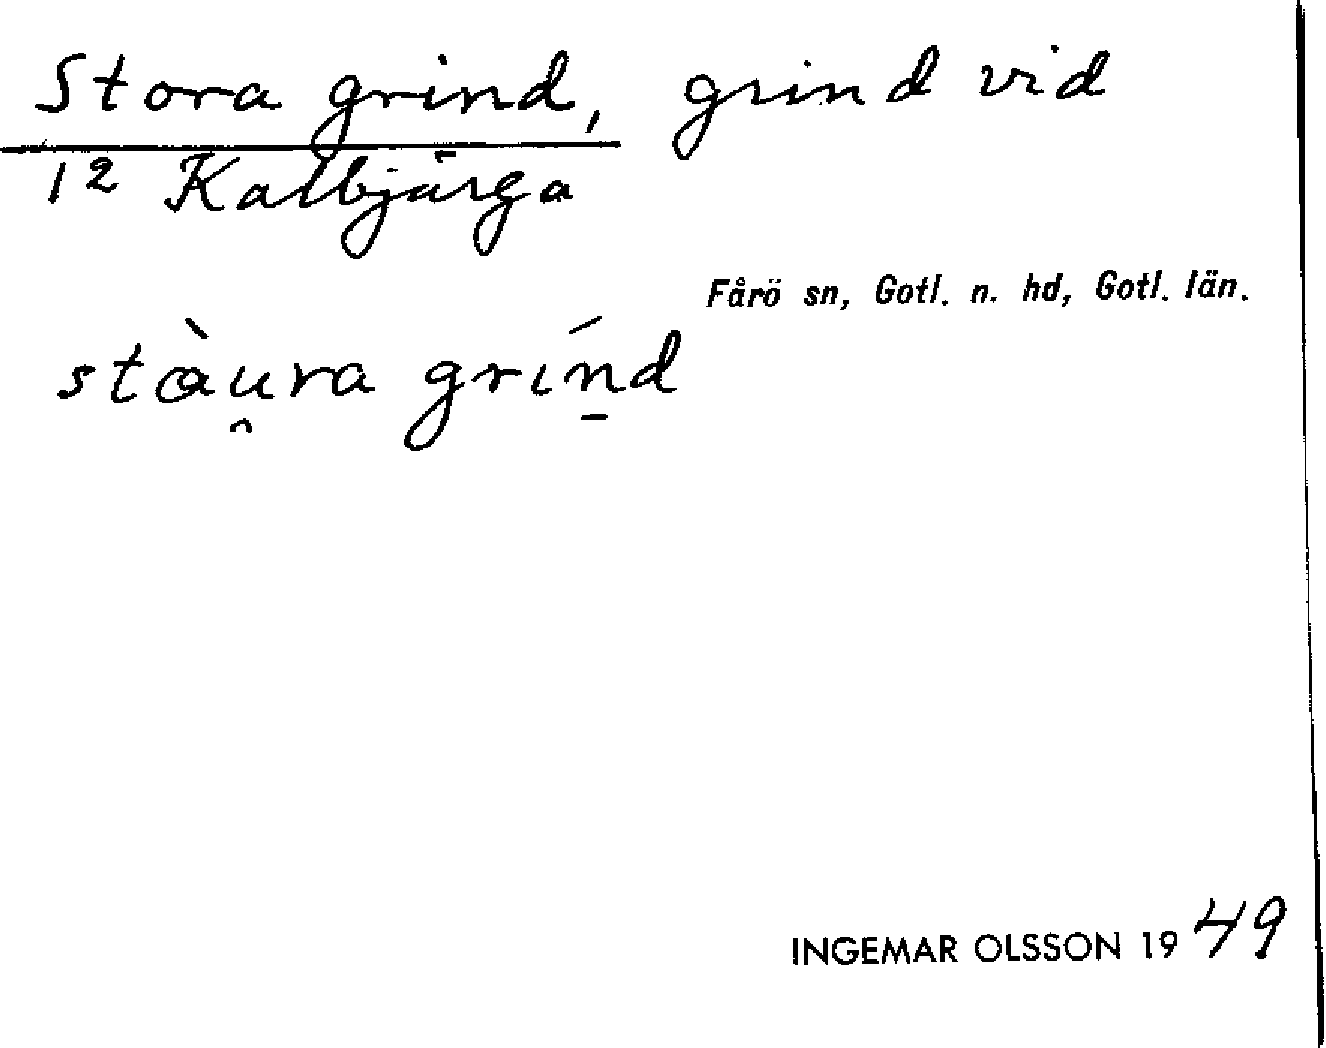 Stora grind, grind vid
1² Kalbjärga
Fårö sn, Gotl. n. hd, Gotl. län.
stàu̯ra grín̠d
INGEMAR OLSSON 1949